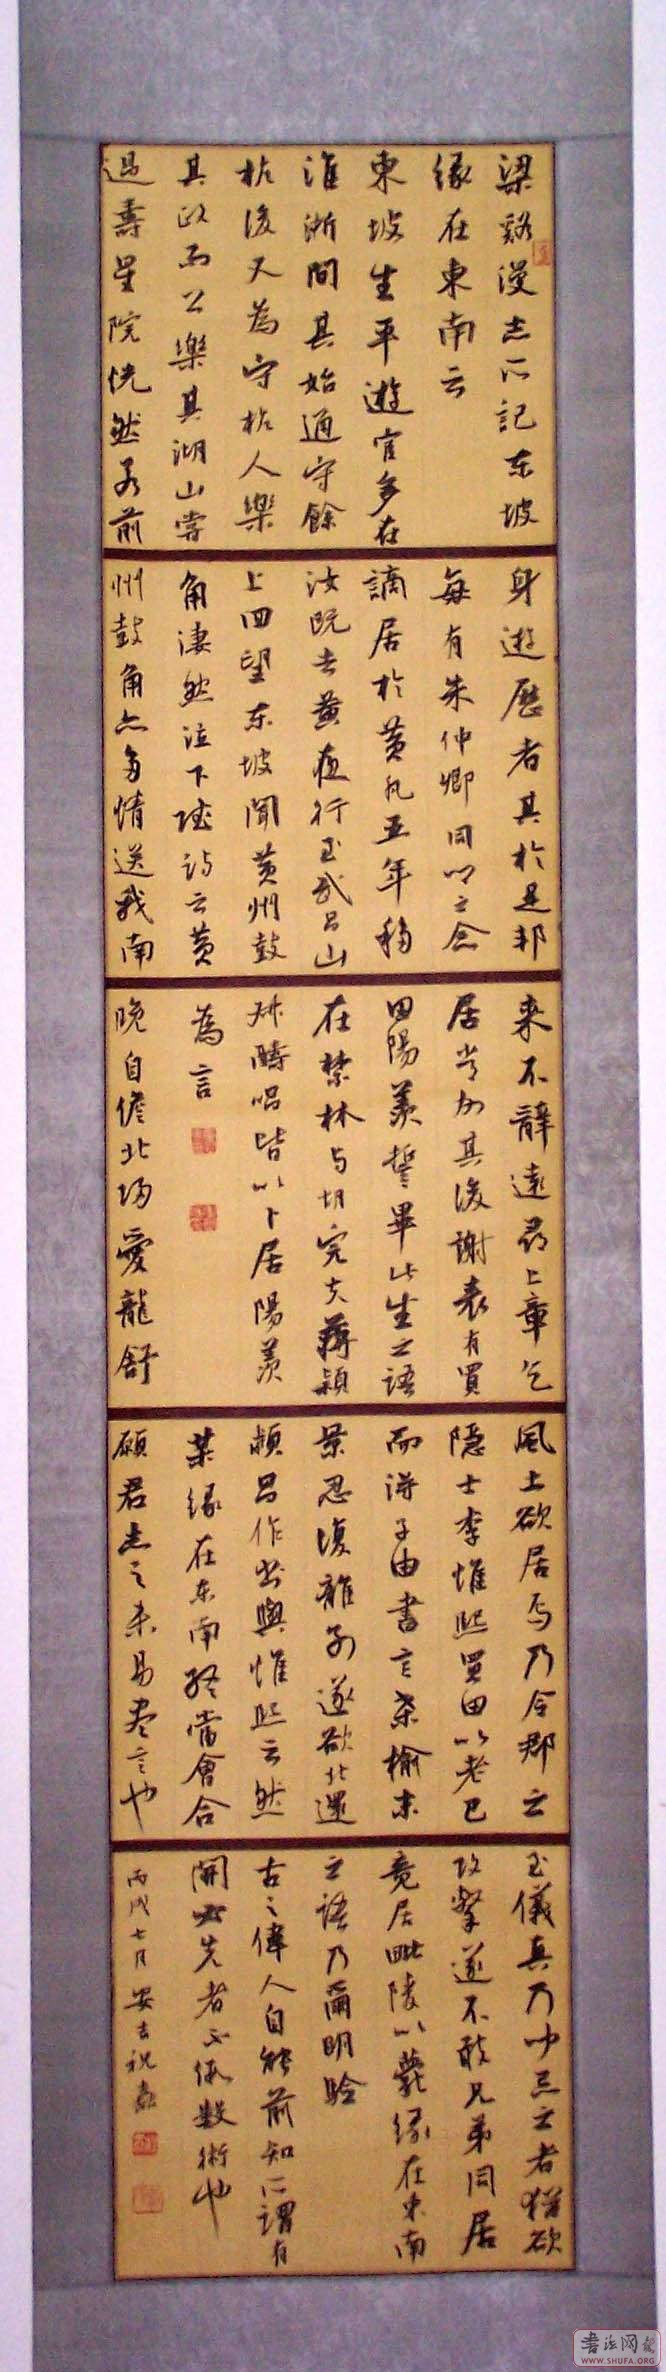 梁谿漫志所記东坡
緣在東南云
東坡生平遊宦多在
淮浙間其始通守餘
杭後又為守杭人樂
其政而公樂其湖山嘗
過壽星院恍然若前
身遊歷者其於是邦
每有朱仲卿同鄉之念
謫居於黃凡五年移
汝既去黃夜行至武昌山
上回望东坡聞黃州鼓
角淒然泣下賦詩云黃
州鼓角亦多情送我南
來不辭遠尋上章乞
居常州其後謝表有買
田陽羨誓畢此生之語
在禁林與胡完夫蔣穎
叔酬唱皆以卜居陽羨
為言
晚自儋北歸愛龍舒
風土欲居焉乃令郡之
隱士李惟熙買田以老已
而得子由書言桑榆末
景忍復離別遂欲北還
潁昌作書與惟熙云然
某緣在东南終當會合
願君志之未易盡言也
至儀真乃聞忌之者猶欲
攻擊遂不敢兄弟同居
竟居毗陵以薨緣在東南
之語乃爾明驗
古之偉人自能前知所謂有
開必先者不假數術也
丙戌七月安吉祝
書法网
WWW.SHUFA.ORG